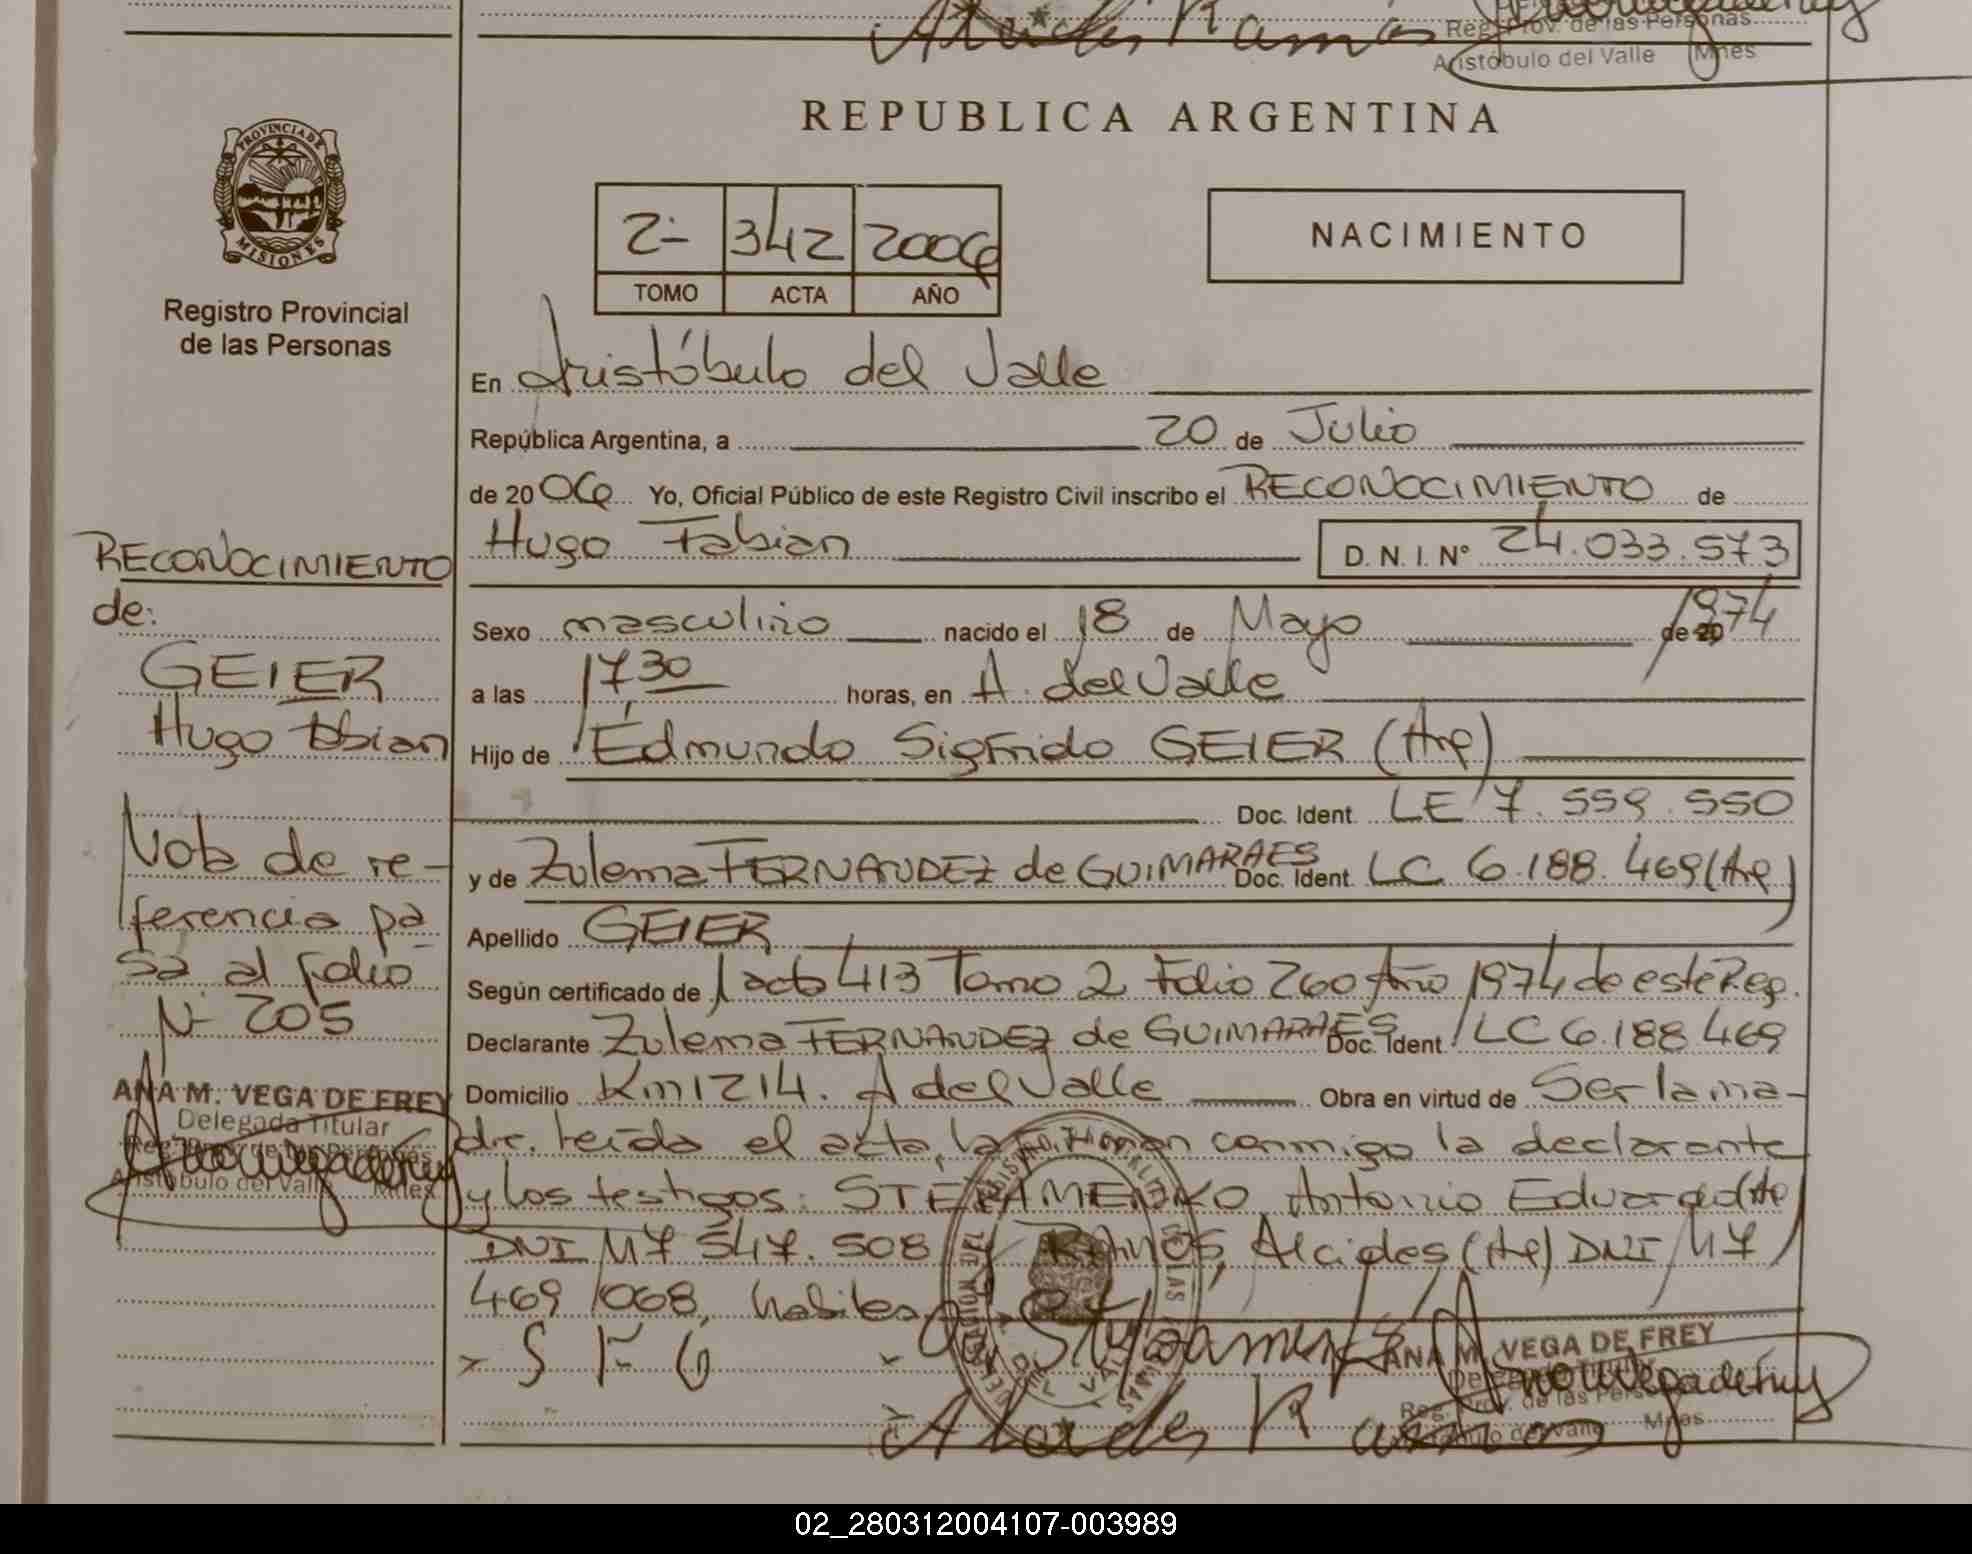 Alcides Ramos
Reg. Prov. de las Personas
Aristóbulo del Valle Mnes
REPUBLICA ARGENTINA
PROVINCIA DE
MISIONES
Registro Provincial
de las Personas
2- 342 2006
TOMO ACTA AÑO
NACIMIENTO
En Aristóbulo del Valle
República Argentina, a 20 de Julio
de 2006 Yo, Oficial Público de este Registro Civil inscribo el RECONOCIMIENTO de
Hugo Fabian D. N. I. N° 24.033.573
Sexo masculino nacido el 18 de Mayo de 20 1974
a las 17 30 horas, en A. del Valle
Hijo de Edmundo Sigfrido GEIER (Arg)
Doc. Ident. LE 7.559.550
y de Zulema FERNANDEZ de GUIMARAES Doc. Ident. LC 6.188.469 (Arg)
Apellido GEIER
Según certificado de acta 413 Tomo 2 Folio 260 Año 1974 de este Reg.
Declarante Zulema FERNANDEZ de GUIMARAES Doc. Ident. LC 6.188 469
Domicilio Km 1214. A del Valle Obra en virtud de Ser la ma-
dre. leida el acta, la firman conmigo la declarante
y los testigos: Antonio Eduardo
DNI M7 547.508 y RAMOS, Alcides (Arg) DNI M7
469 068, habiles
S F G
Alcides Ramos
ANA M. VEGA DE FREY
Reg. Prov. de las Personas
Mnes
RECONOCIMIENTO
de:
GEIER
Hugo Fabian
Nota de re-
ferencia pa
sa al folio
N- 205
ANA M. VEGA DE FREY
Delegada Titular
Reg. Prov. de las Personas
Aristóbulo del Valle Mnes
02_280312004107-003989